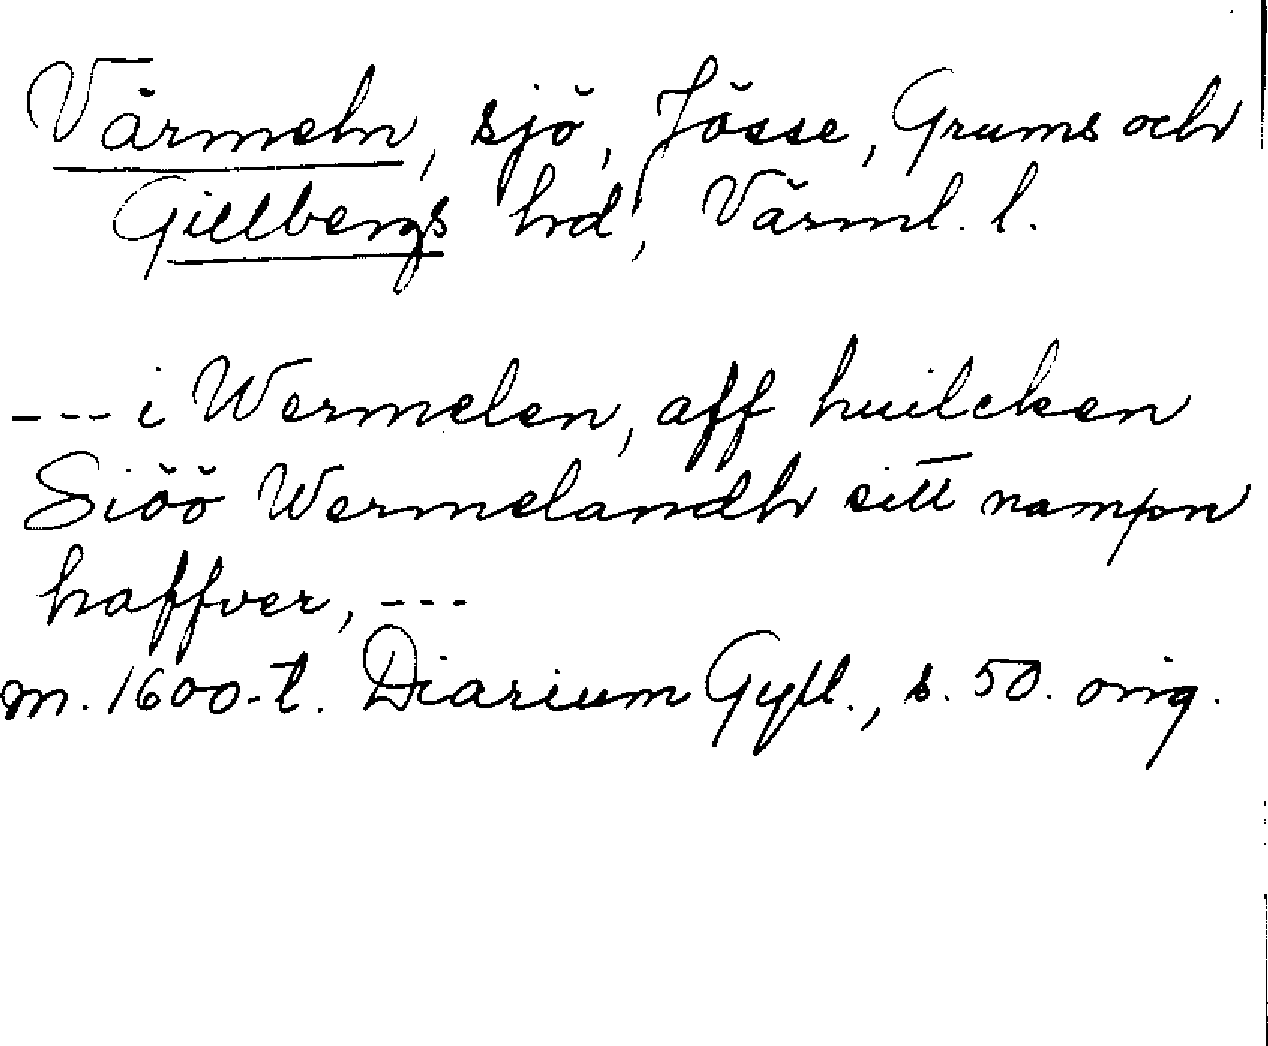 Värmeln, sjö, Jösse, Grums och
Gillbergs hd, Värml. l.
--- i Wermelen, aff huilcken
Siöö Wermelandh sitt nampn
haffver, ---
m. 1600-t. Diarium Gyll., s. 50. orig.